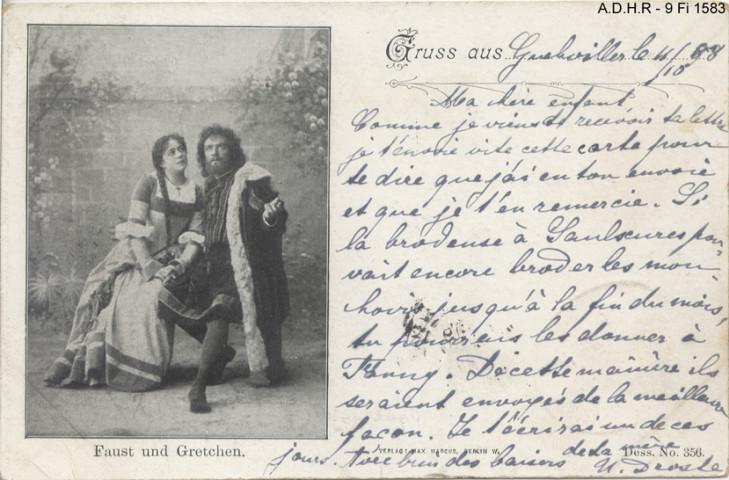 A.D.H.R - 9 Fi 1583
Gruss aus Guebviller le 4/10 98
Ma chère enfant,
Comme je viens de recevoir ta lettre
je t'envoie vite cette carte pour
te dire que j'ai eu ton envoie
et que je t'en remercie. Si
la brodeuse à Saulxures pou-
vait encore broder les mou-
choirs jusqu'à la fin du mois,
tu pourrais les donner à
Fanny. De cette manière ils
seraient envoyés de la meilleure
façon. Je t'écrirai un de ces
jours. Avec bien des baisers de ta mère
Faust und Gretchen.
VERLAG: MAX MARCUS, BERLIN W.
Dess. No. 356.